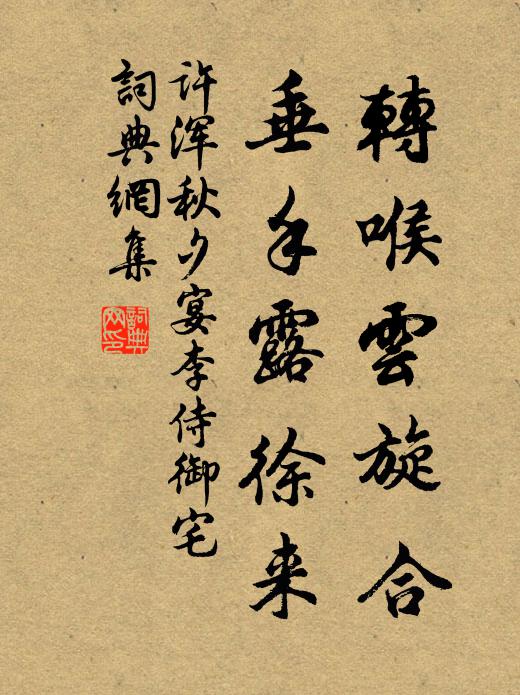 轉喉雲旋合
垂手露徐来
许渾秋夕宴李侍御宅
詞典網集
詞典网印